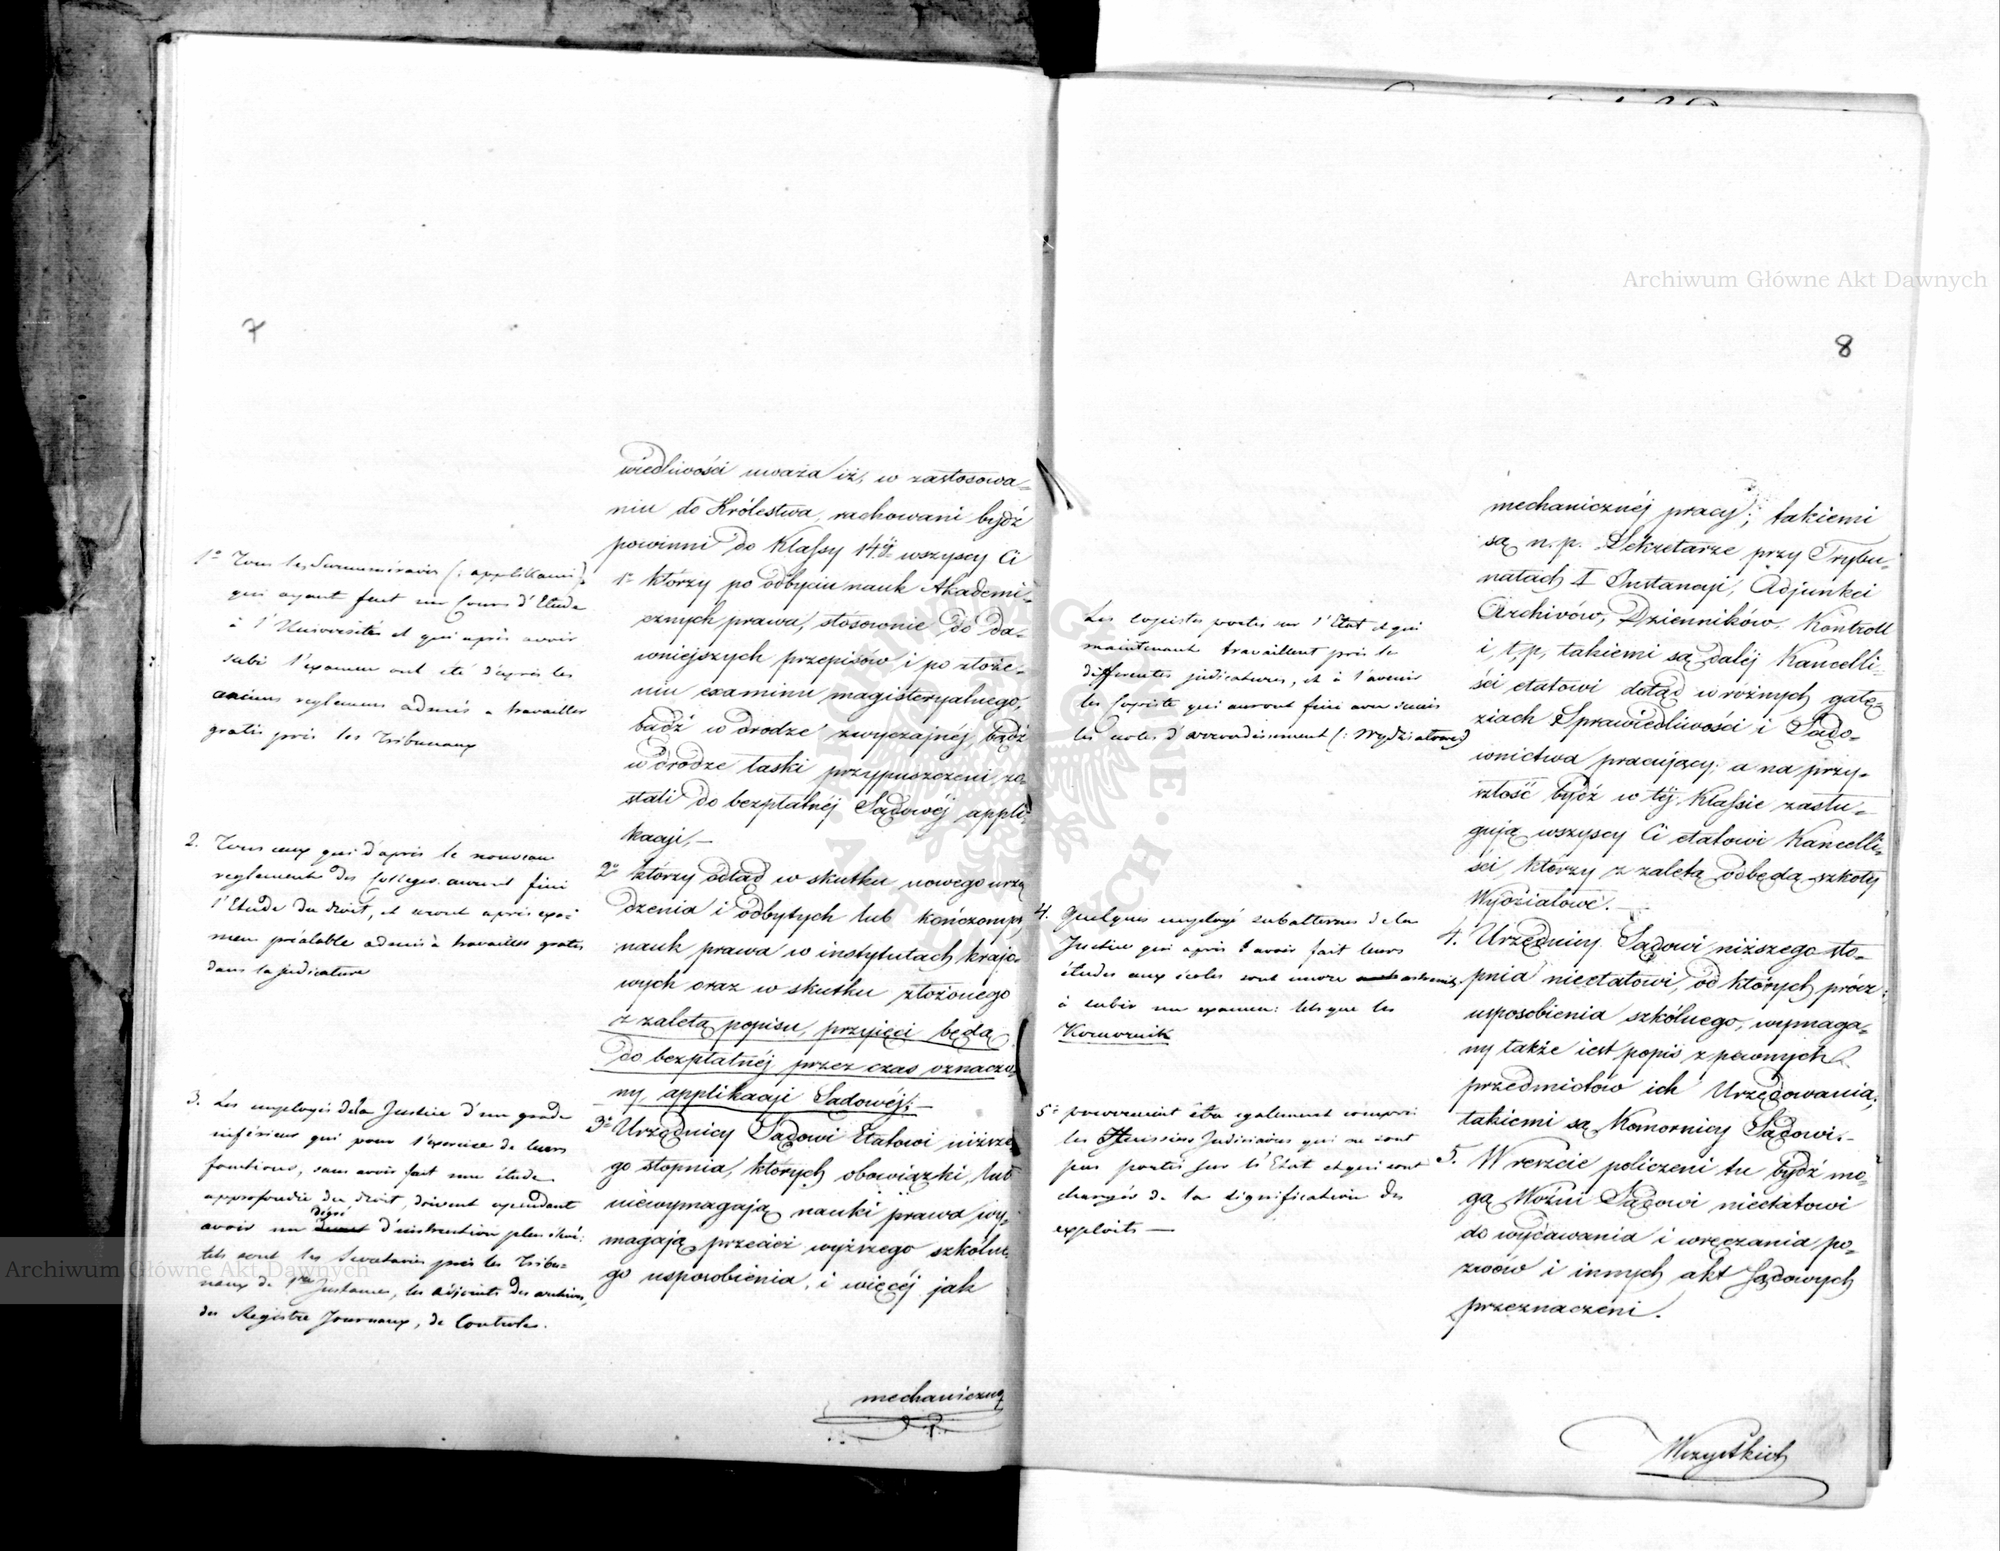 7
1º Tous les Surnuméraires (: applikanci :)
qui ayant fait un Cours d'Etude
à l'Université et qui après avoir
subi l'examen ont été d'après les
anciens reglemens admis a travailler
gratis près les Tribunaux
2. Tous ceux qui d'après le nouveau
reglement des Colleges auront fini
l'Etude du droit, et seront après exa-
men préalable admis à travailler gratis
dans la judicature
3. Les employés de la Justice d'un grade
inférieur qui pour l'exercice de leurs
fonctions, sans avoir fait une étude
approfondie du droit, doivent cependant
avoir un degré d'instruction plus élevé:
tels sont les Secretaires près les Tribu-
naux de 1re Instance, les adjoints des archives,
des Registre Journaux, de Controles.
wiedliwości uważa iż, w zastosowa-
niu do Królestwa, rachowani bydź
powinni do Klassy 14éj wszyscy Ci
1º którzy po odbyciu nauk Akademi-
cznych prawa, stósownie do da-
wniejszych przepisów i po złoże-
niu examinu magisteryalnego,
bądź w drodze zwyczajnéj, bądź
w drodze łaski przypuszczeni zo-
stali do bezpłatnéj Sądowéj appli-
kacji,—
2º którzy odtąd w skutku nowego urzą
dzenia i odbytych lub kończonych
nauk prawa w instytutach krajo-
wych oraz w skutku złożonego
z zaletą popisu, przyięci będą
do bezpłatnéj przez czas oznaczo-
ny, applikacji Sądowéj;—
3º Urzędnicy Sądowi Etatowi niższe
go stopnia, których obowiązki, lub
niewymagają nauki prawa wy-
magają przecież wyższego szkólne
go usposobienia, i więcéj jak
mechaniczną
8
Les copistes portés sur l'Etat et qui
maintenant travaillent près le
differentes judicatures, et à l'avenir
les Copiste qui auront fini avec succès
les ecoles d'arrondissement (: Wydziałowe)
4. Quelques employé subalternes de la
Justice qui après avoir fait leurs
études aux écoles sont encore astreints
à subir un examen: tels que les
Komornik
5º pourroient être egalement compris
les Huissiers Judiciaires qui ne sont
pas portés sur l'Etat et qui sont
chargés de la signification des
exploits —
mechanicznéj pracy; takiemi
są n. p. Sekretarze przy Trybu-
nałach I Instancyi, Adjunkci
Archivów, Dzienników, Kontroll
i, t, p, takiemi są daléj Kancelli-
ści etatowi dotąd w różnych gałę-
ziach Sprawiedliwości i Sądo-
wnictwa pracujący; a na przy-
szłość bydź w téj Klassie zasłu-
gują wszyscy Ci etatowi Kancelli-
ści, którzy z zaletą odbędą szkoły
Wydziałowe.—
4. Urzędnicy Sądowi niższego sto-
pnia nieetatowi, od których prócz
usposobienia szkólnego, wymaga-
ny także iest popis z pewnych
przedmiotów ich Urzędowania;
takiemi są Komornicy Sądowi.—
5. W reszcie policzeni tu bydź mo-
gą Woźni Sądowi nieetatowi
do wydawania i wręczania po-
zwów i innych akt Sądowych
przeznaczeni.
Wszystkich
Archiwum Główne Akt Dawnych
Archiwum Główne Akt Dawnych
ARCHIWUM GŁÓWNE AKT DAWNYCH